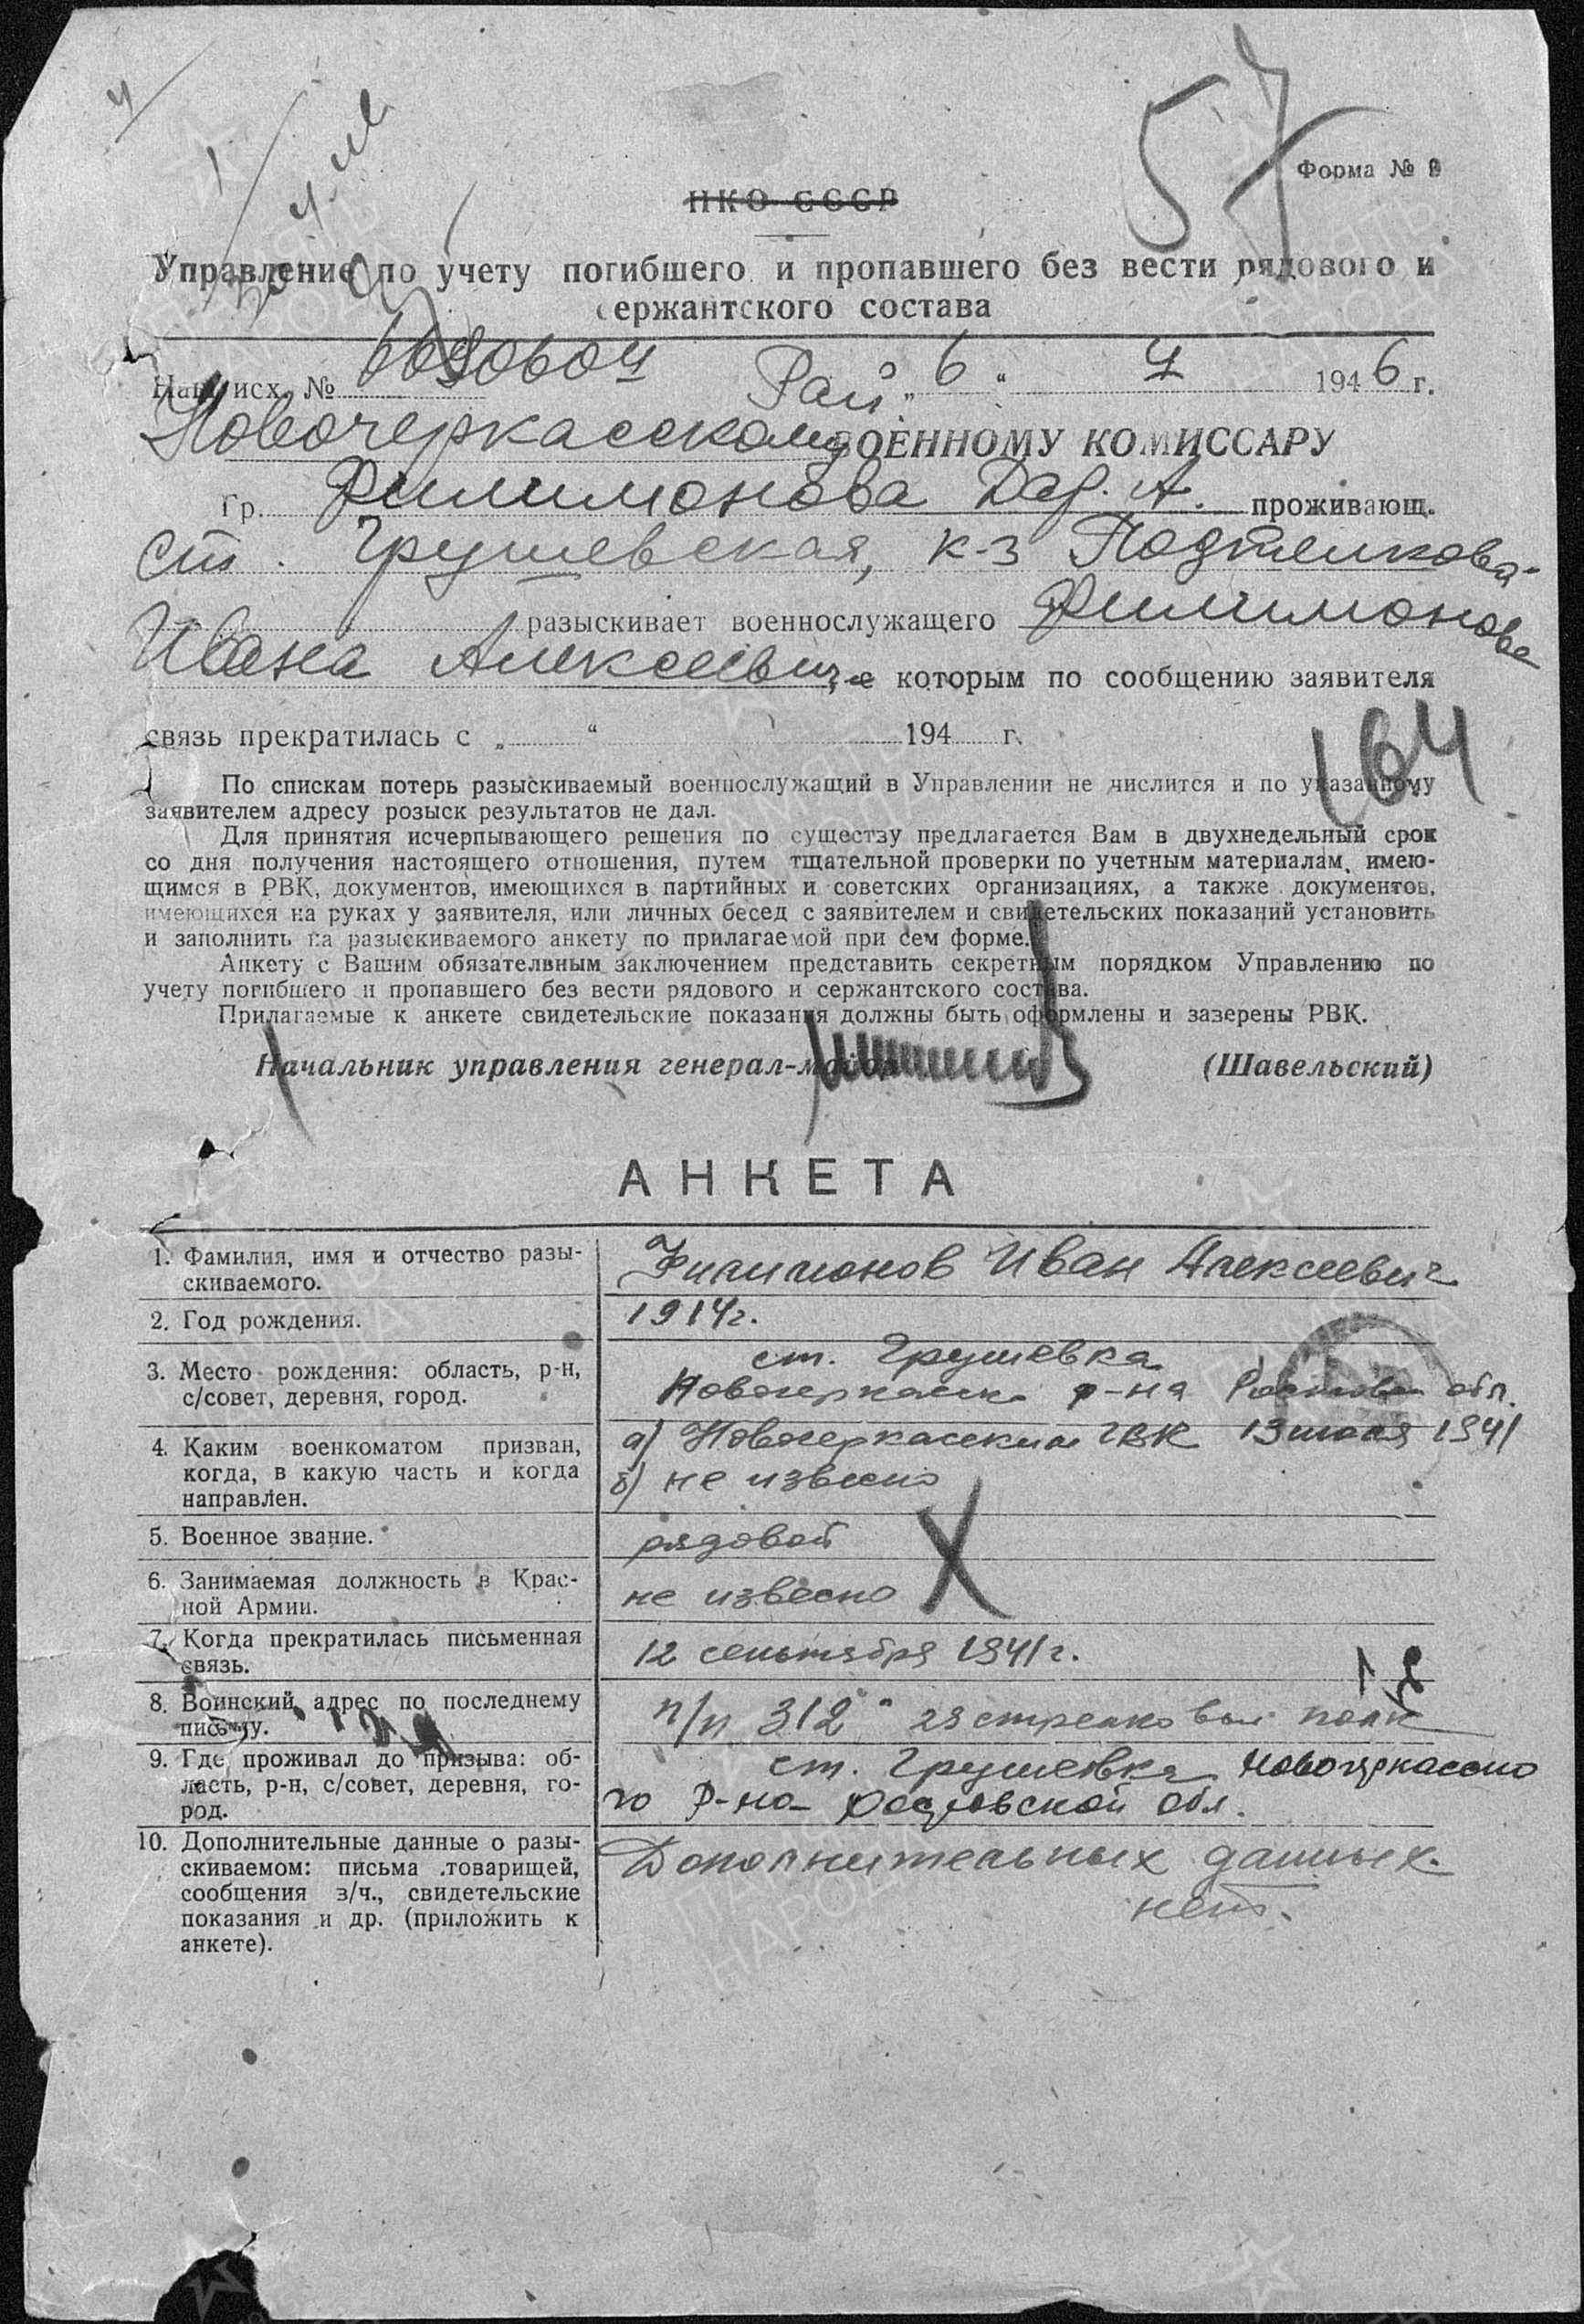 57
Форма №
НКО СССР
Управление по учету погибшего и пропавшего без вести рядового и
сержантского состава
Наш исх. № Рай. „ 6 “ 4 1946 г.
Новочеркасскому ВОЕННОМУ КОМИССАРУ
Гр. Филимонова Дар. А. проживающ.
ст. Грушевская, к-з Подтелкова
разыскивает военнослужащего Филимонова
Ивана Алексеевича с которым по сообщению заявителя
связь прекратилась с „ “ 194 г.
164
По спискам потерь разыскиваемый военнослужащий в Управлении не числится и по указанному
заявителем адресу розыск результатов не дал.
Для принятия исчерпывающего решения по существу предлагается Вам в двухнедельный срок
со дня получения настоящего отношения, путем тщательной проверки по учетным материалам, имею-
щимся в РВК, документов, имеющихся в партийных и советских организациях, а также документов,
имеющихся на руках у заявителя, или личных бесед с заявителем и свидетельских показаний установить
и заполнить на разыскиваемого анкету по прилагаемой при сем форме.
Анкету с Вашим обязательным заключением представить секретным порядком Управлению по
учету погибшего и пропавшего без вести рядового и сержантского состава.
Прилагаемые к анкете свидетельские показания должны быть оформлены и заверены РВК.
Начальник управления генерал-майор (Шавельский)
АНКЕТА
1. Фамилия, имя и отчество разы-
скиваемого.
Филимонов Иван Алексеевич
2. Год рождения.
1914г.
3. Место рождения: область, р-н,
с/совет, деревня, город.
ст. Грушевка
Новочеркасск р-на Ростовск обл.
4. Каким военкоматом призван,
когда, в какую часть и когда
направлен.
а) Новочеркасским ГВК 13 июля 1941
б) не извесно
5. Военное звание.
рядовой
6. Занимаемая должность в Крас-
ной Армии.
не извесно
7. Когда прекратилась письменная
связь.
12 сентября 1941г.
8. Воинский адрес по последнему
письму.
п/п 312 стрелковый полк
9. Где проживал до призыва: об-
ласть, р-н, с/совет, деревня, го-
род.
ст. Грушевка Новочеркасско
го Р-на Ростовской обл.
10. Дополнительные данные о разы-
скиваемом: письма товарищей,
сообщения з/ч., свидетельские
показания и др. (приложить к
анкете).
Дополнительных данных
нет.